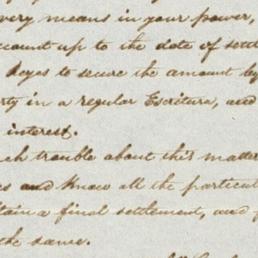 very means in your power,
ccount up to the date of settl
Reyes to secure the amount by
rty in a regular Escritura, and
interest.
ch trouble about this matter
es and know all the particul
tain a final settlement, and f
the same.